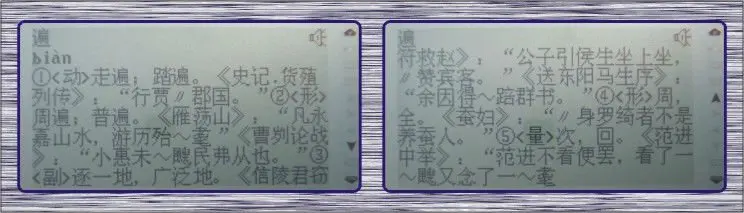 遍
biàn
①<动>走遍；踏遍。《史记.货殖
列传》：“行贾〃郡国。”②<形>
周遍；普遍。《雁荡山》：“凡永
嘉山水，游历殆～耄”《曹刿论战
》：“小惠未～飔民弗从也。”③
<副>逐一地，广泛地。《信陵君窃
遍
符救赵》：“公子引侯生坐上坐，
〃赞宾客。”《送东阳马生序》：
“余因得～踣群书。”④<形>周，
全。《蚕妇》：“〃身罗绮者不是
养蚕人。”⑤<量>次，回。《范进
中举》：“范进不看便罢，看了一
～飔又念了一～耄